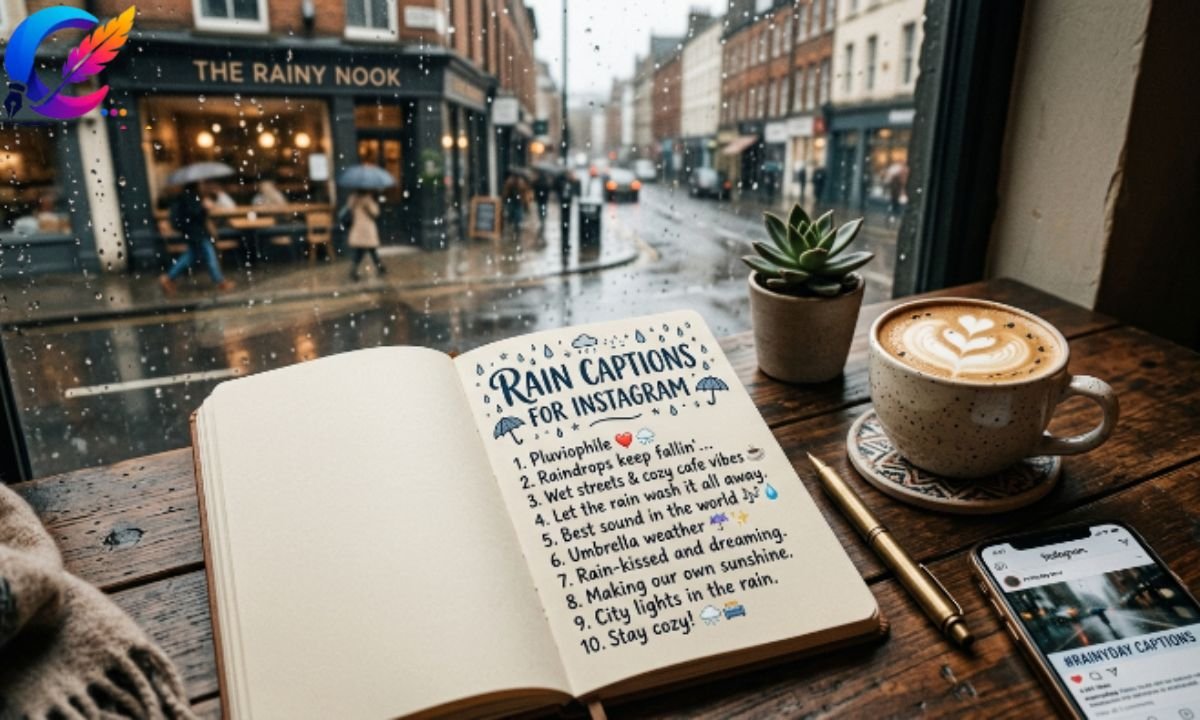 THE RAINY NOOK
RAIN CAPTIONS
FOR INSTAGRAM
1. Pluviophile ❤️ 🌧️
2. Raindrops keep fallin'...
3. Wet streets & cozy cafe vibes ☕
4. Let the rain wash it all away.
5. Best sound in the world 🎶💧
6. Umbrella weather ☔✨
7. Rain-kissed and dreaming.
8. Making our own sunshine.
9. City lights in the rain.
10. Stay cozy! 🌧️🛋️
Instagram
#RAINYDAY CAPTIONS